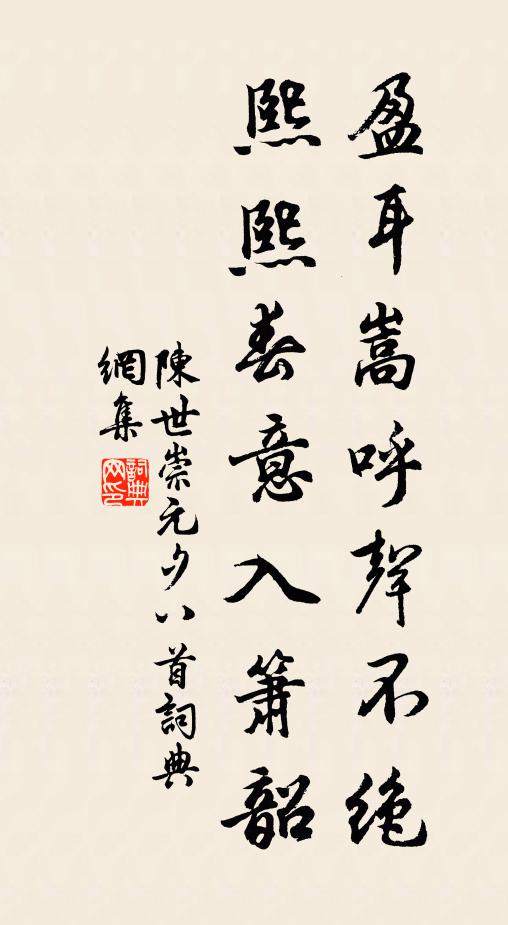 盈耳嵩呼聲不絶
熙熙春意入簫韶
陳世崇元夕八首詞典
網集
詞典网印